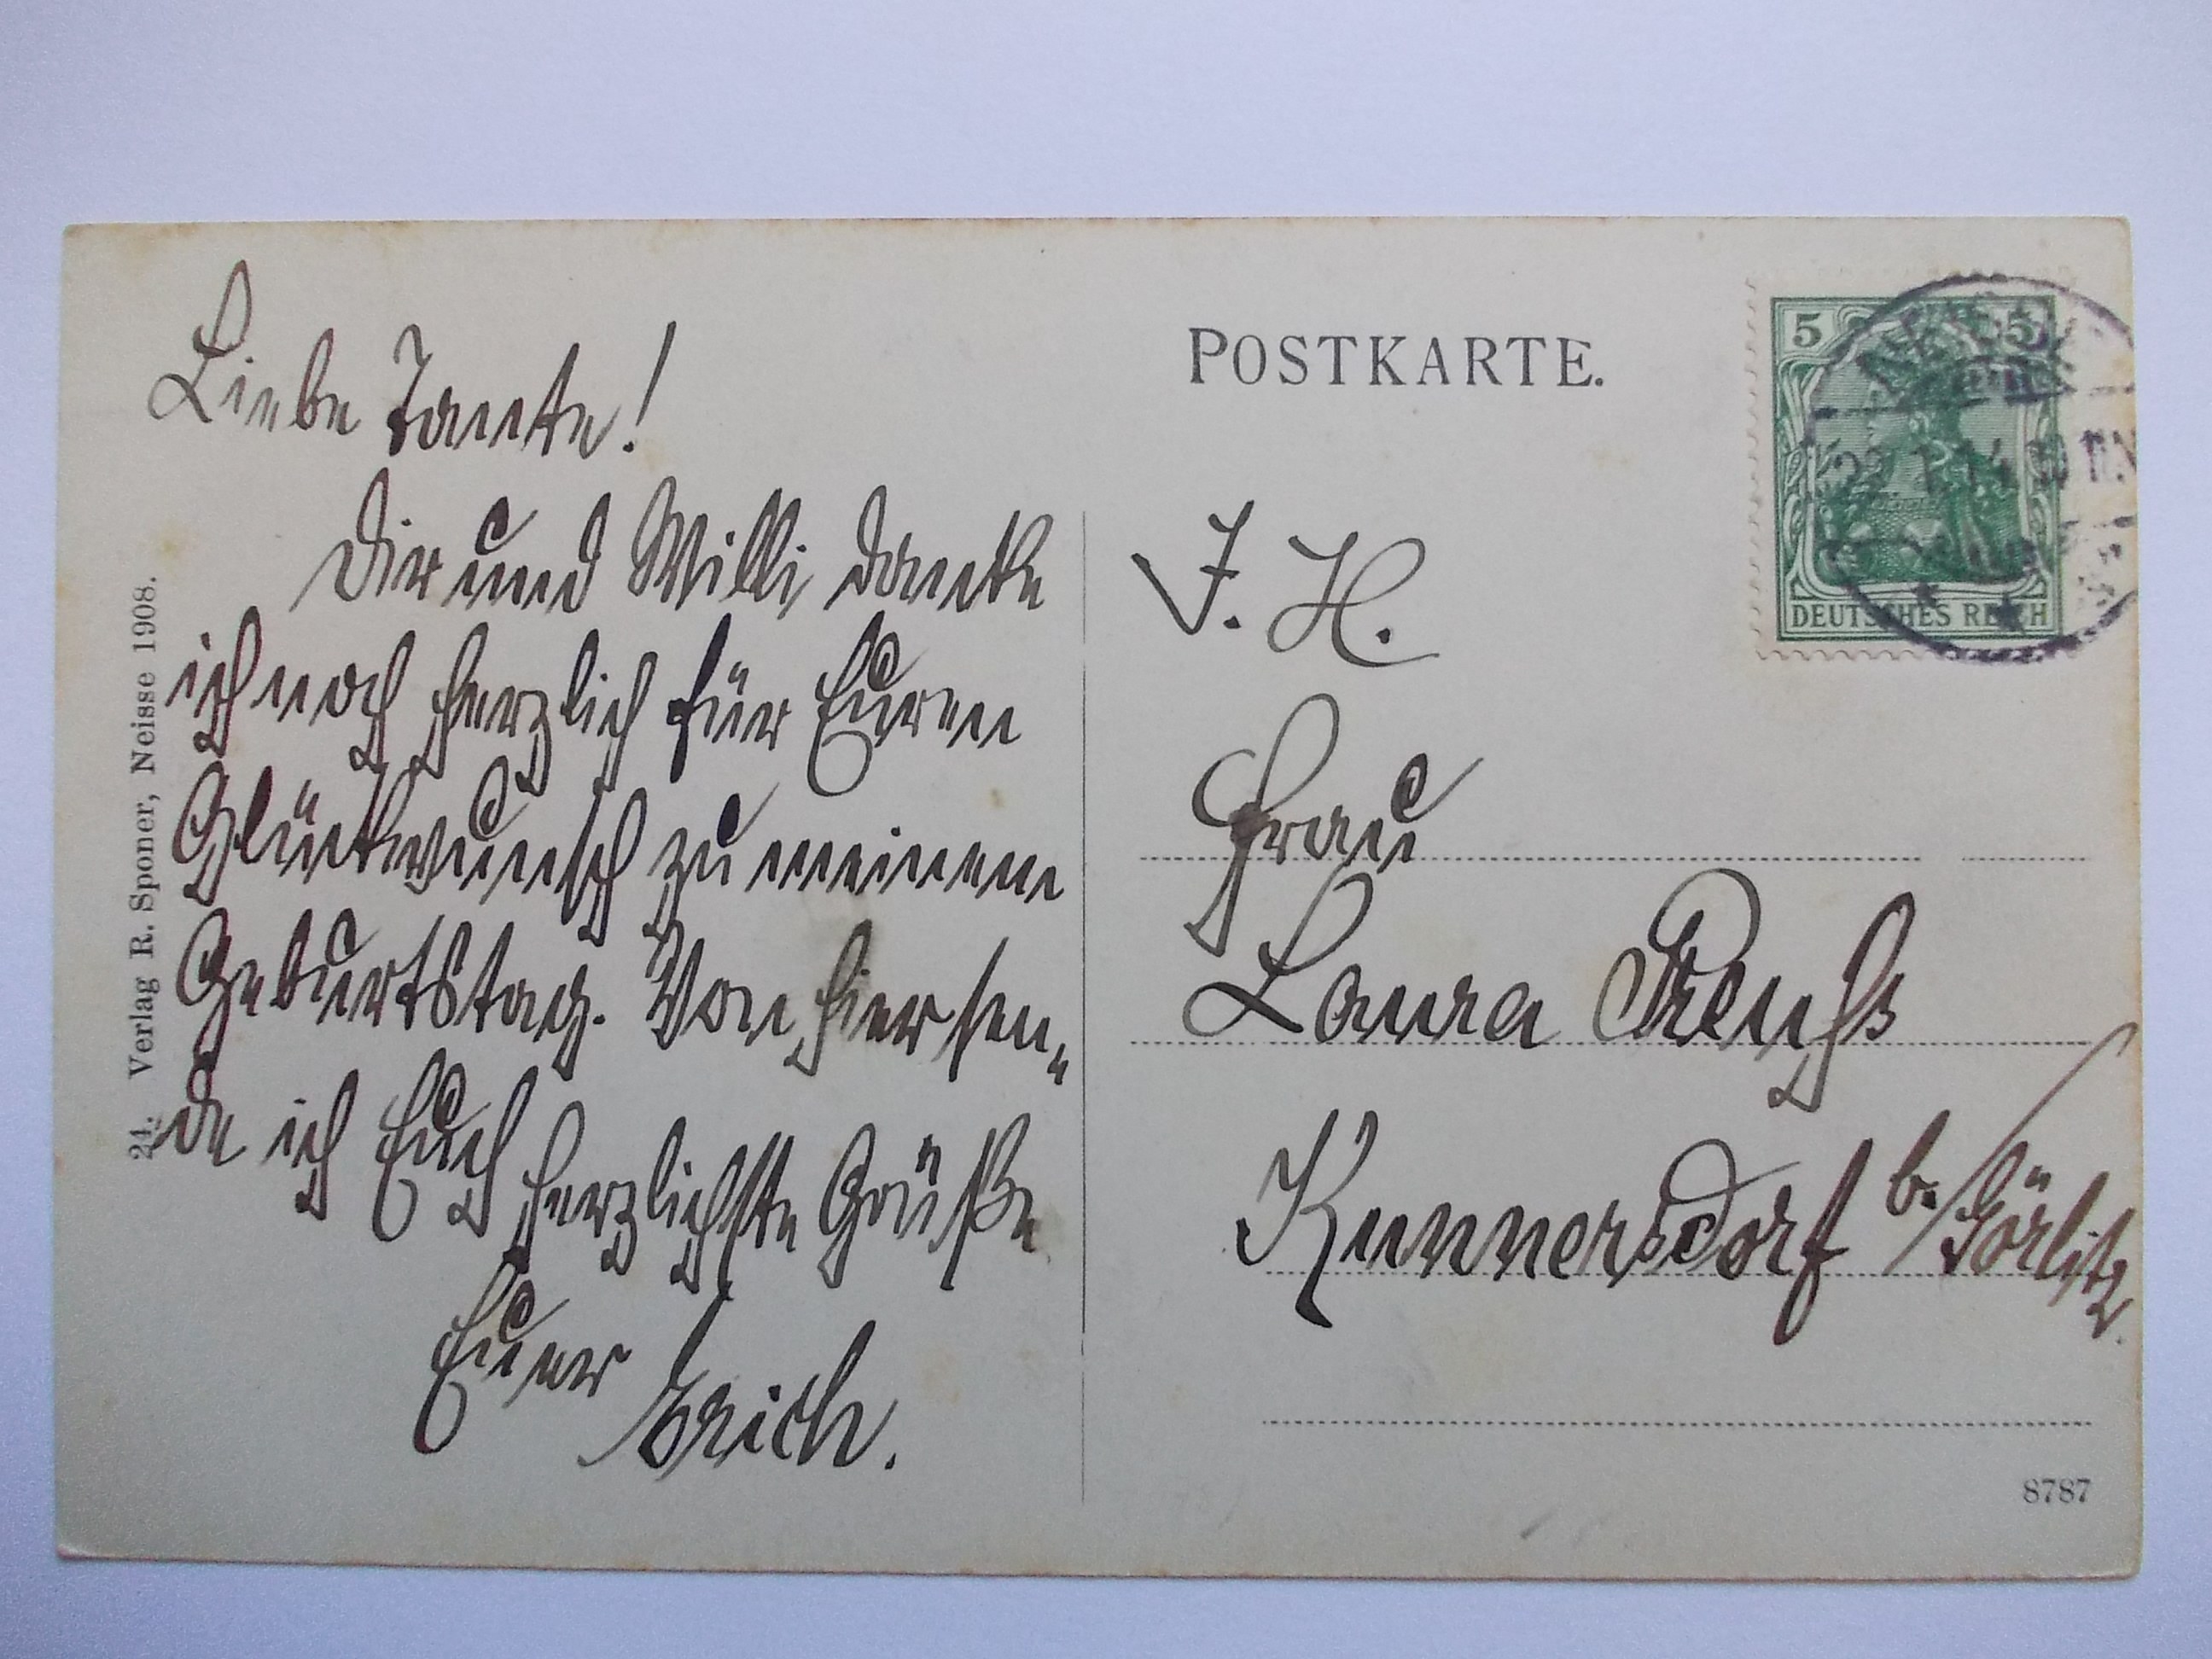 Liebe Tante!
Dir und Willi danke
ich noch herzlich für Euren
Glückwunsch zu meinem
Geburtstag. Von hier sen-
de ich Euch herzlichste Grüße
Euer Erich.
24. Verlag R. Sponer, Neisse 1908.
POSTKARTE.
5 5
DEUTSCHES REICH
I. H.
Frau
Laura Preuß
Kunnersdorf b./Görlitz.
8787